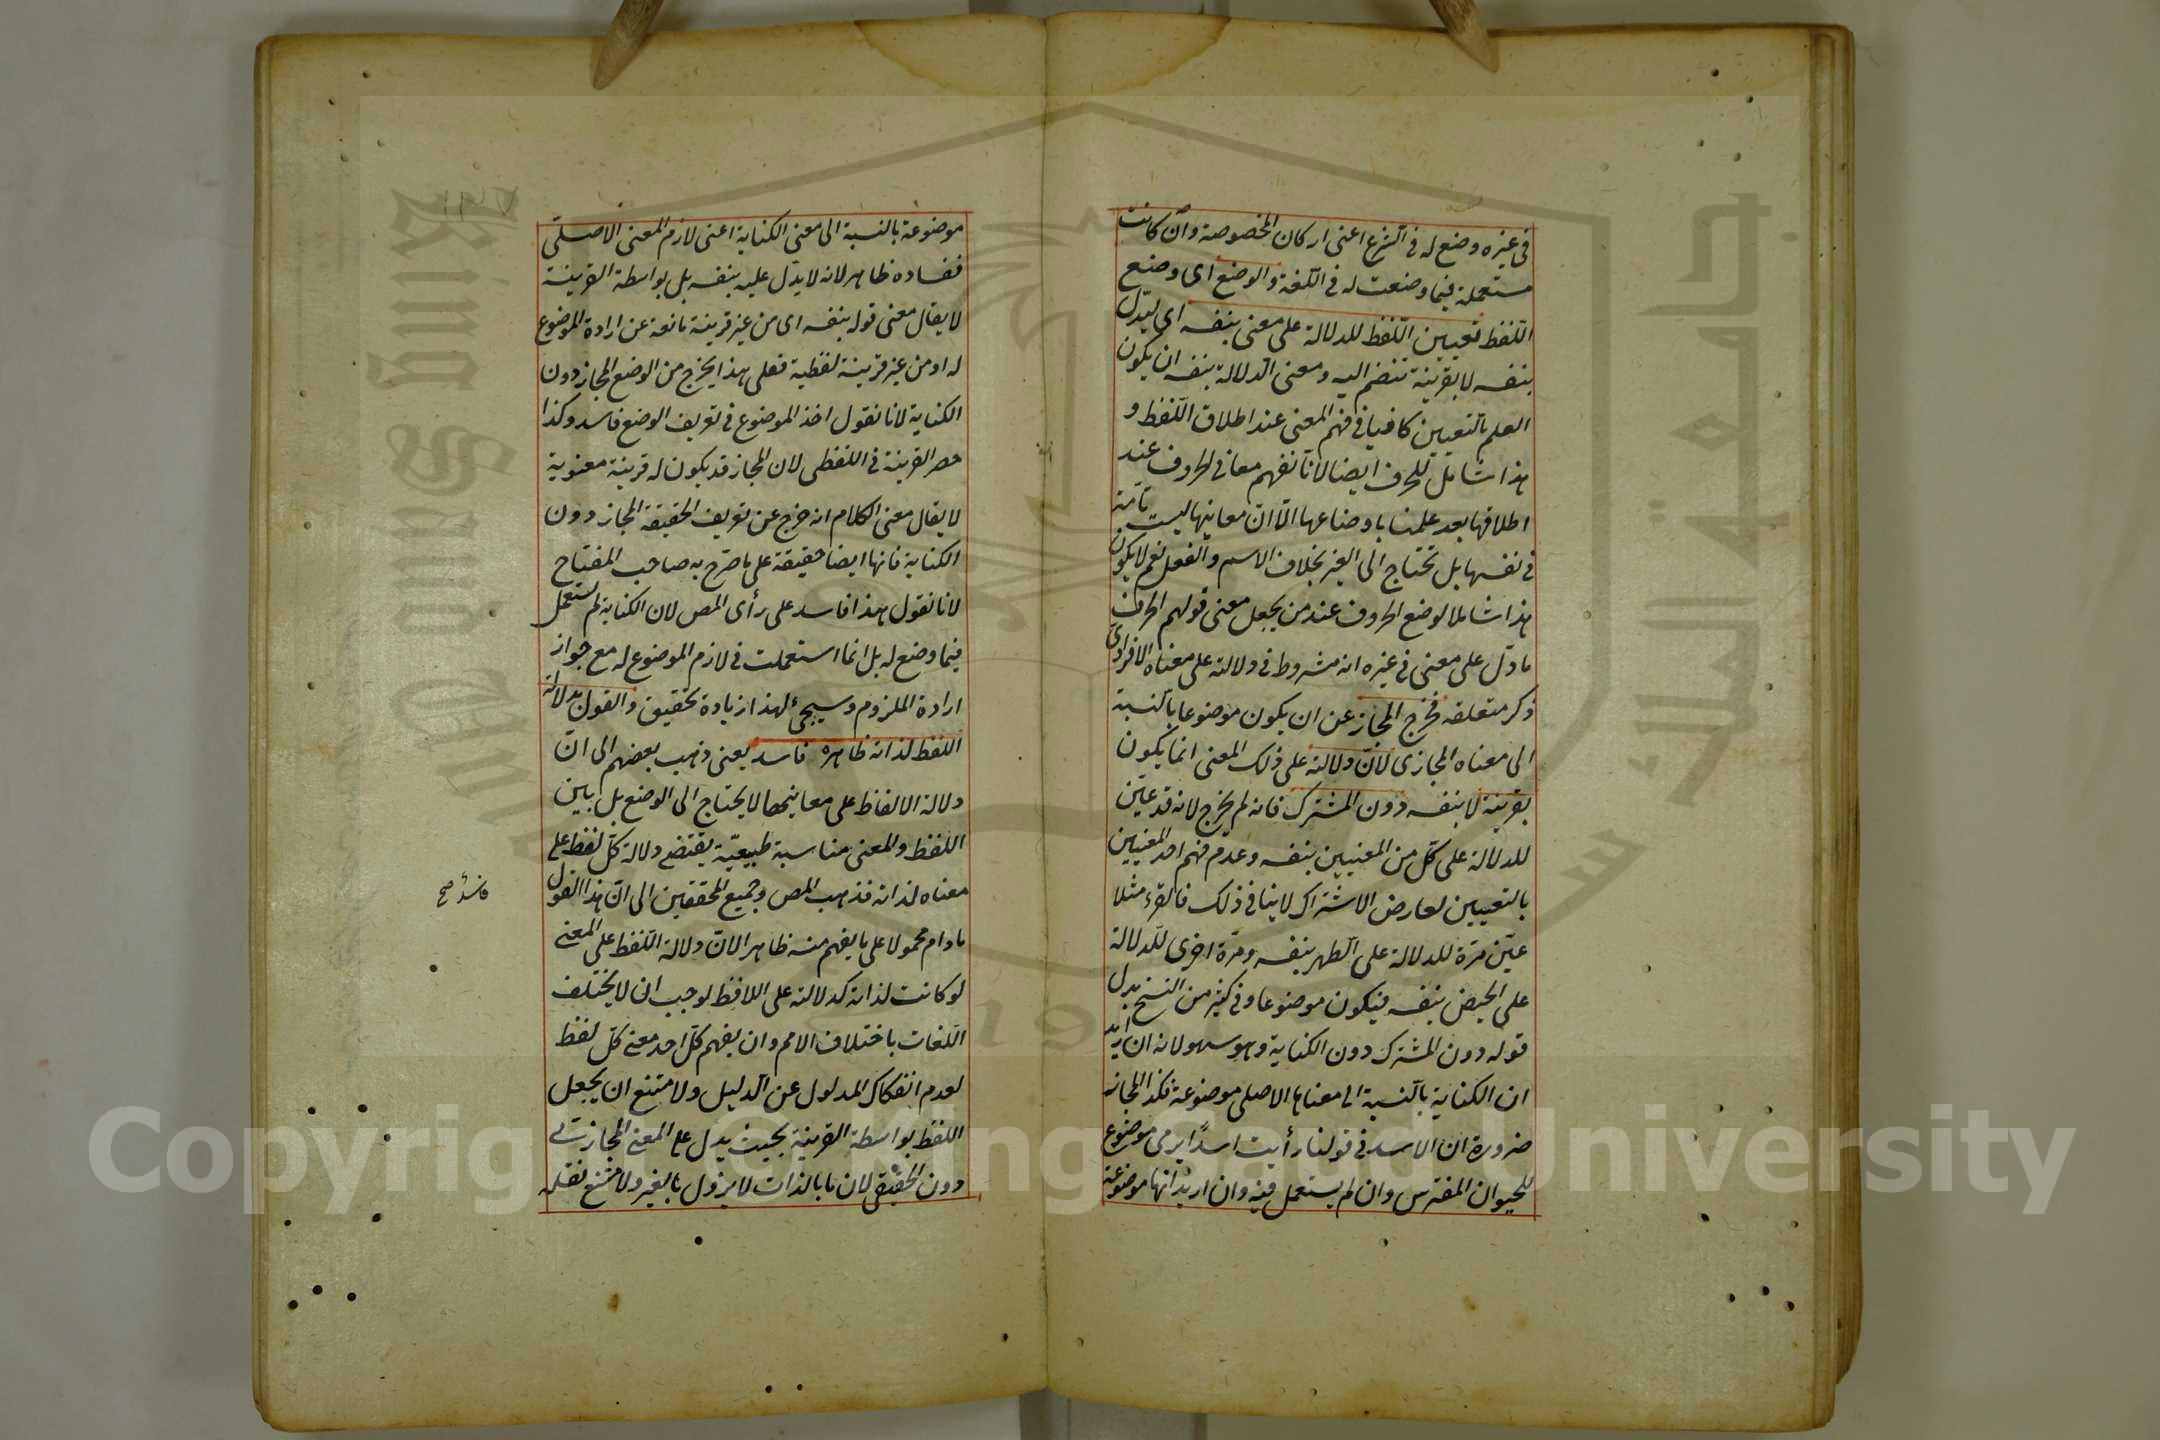 في غيره وضع له في الشرع اعنى اركان المخصوصة وان كانت
مستعملة فيما وضعت له في اللغة والوضع اى وضع
اللفظ تعيين اللفظ للدلالة على معنى بنفسه اى ليدل
بنفسه لا بقرينة تنضم اليه ومعنى الدلالة بنفسه ان يكون
العلم بالتعيين كافيا في فهم المعنى عند اطلاق اللفظ و
هذا شامل للحرف ايضا لانا نفهم معاني الحروف عند
اطلاقها بعد علمنا باوضاعها الا ان معانيها ليست تامة
في نفسها بل تحتاج الى الغير بخلاف الاسم والفعل نعم لا يكون
هذا شاملا لوضع الحروف عند من يجعل معنى قولهم الحرف
ما دل على معنى في غيره انه مشروط في دلالته على معناه الافرادى
ذكر متعلقه فخرج المجاز عن ان يكون موضوعا بالنسبة
الى معناه المجازى لان دلالته على ذلك المعنى انما يكون
بقرينة لا بنفسه دون المشترك فانه لم يخرج لانه قد عين
للدلالة على كل من المعنيين بنفسه وعدم فهم احد المعنيين
بالتعيين لعارض الاشتراك لا ينافي ذلك فالقرء مثلا
عين مرة للدلالة على الطهر بنفسه ومرة اخرى للدلالة
على الحيض بنفسه فيكون موضوعا وفي كثير من النسخ بدل
قوله دون المشترك دون الكناية وهو سهو لانه ان اريد
ان الكناية بالنسبة الى معناها الاصلى موضوعة فكذا المجاز
ضرورة ان الاسد في قولنا رأيت اسدًا يرمى موضوع
للحيوان المفترس وان لم يستعمل فيه وان اريد انها موضوعة
موضوعة بالنسبة الى معنى الكناية اعنى لازم المعنى الاصلى
ففساده ظاهر لانه لا يدل عليه بنفسه بل بواسطة القرينة
لا يقال معنى قوله بنفسه اى من غير قرينة مانعة عن ارادة الموضوع
له او من غير قرينة لفظية فعلى هذا يخرج من الوضع المجاز دون
الكناية لانا نقول اخذ الموضوع في تعريف الوضع فاسد وكذا
حصر القرينة في اللفظى لان المجاز قد يكون له قرينة معنوية
لا يقال معنى الكلام انه خرج عن تعريف الحقيقة المجاز دون
الكناية فانها ايضا حقيقة على ما صرح به صاحب المفتاح
لانا نقول هذا فاسد على رأى المص لان الكناية لم تستعمل
فيما وضع له بل انما استعملت في لازم الموضوع له مع جواز
ارادة الملزوم وسيجئ لهذا زيادة تحقيق والقول بدلالة
اللفظ لذاته ظاهره فاسد يعنى ذهب بعضهم الى ان
دلالة الالفاظ على معانيها لا يحتاج الى الوضع بل بين
اللفظ والمعنى مناسبة طبيعية يقتضى دلالة كل لفظ على
معناه لذاته فذهب المص وجميع المحققين الى ان هذا القول
فاسد صح
ما دام محمولا على ما يفهم منه ظاهرا لان دلالة اللفظ على المعنى
لو كانت لذاته كدلالته على اللافظ لوجب ان لا يختلف
اللغات باختلاف الامم وان يفهم كل احد معنى كل لفظ
لعدم انفكاك المدلول عن الدليل ولامتنع ان يجعل
اللفظ بواسطة القرينة بحيث يدل على المعنى المجازى
دون الحقيقى لان ما بالذات لا يزول بالغير ولامتنع نقله